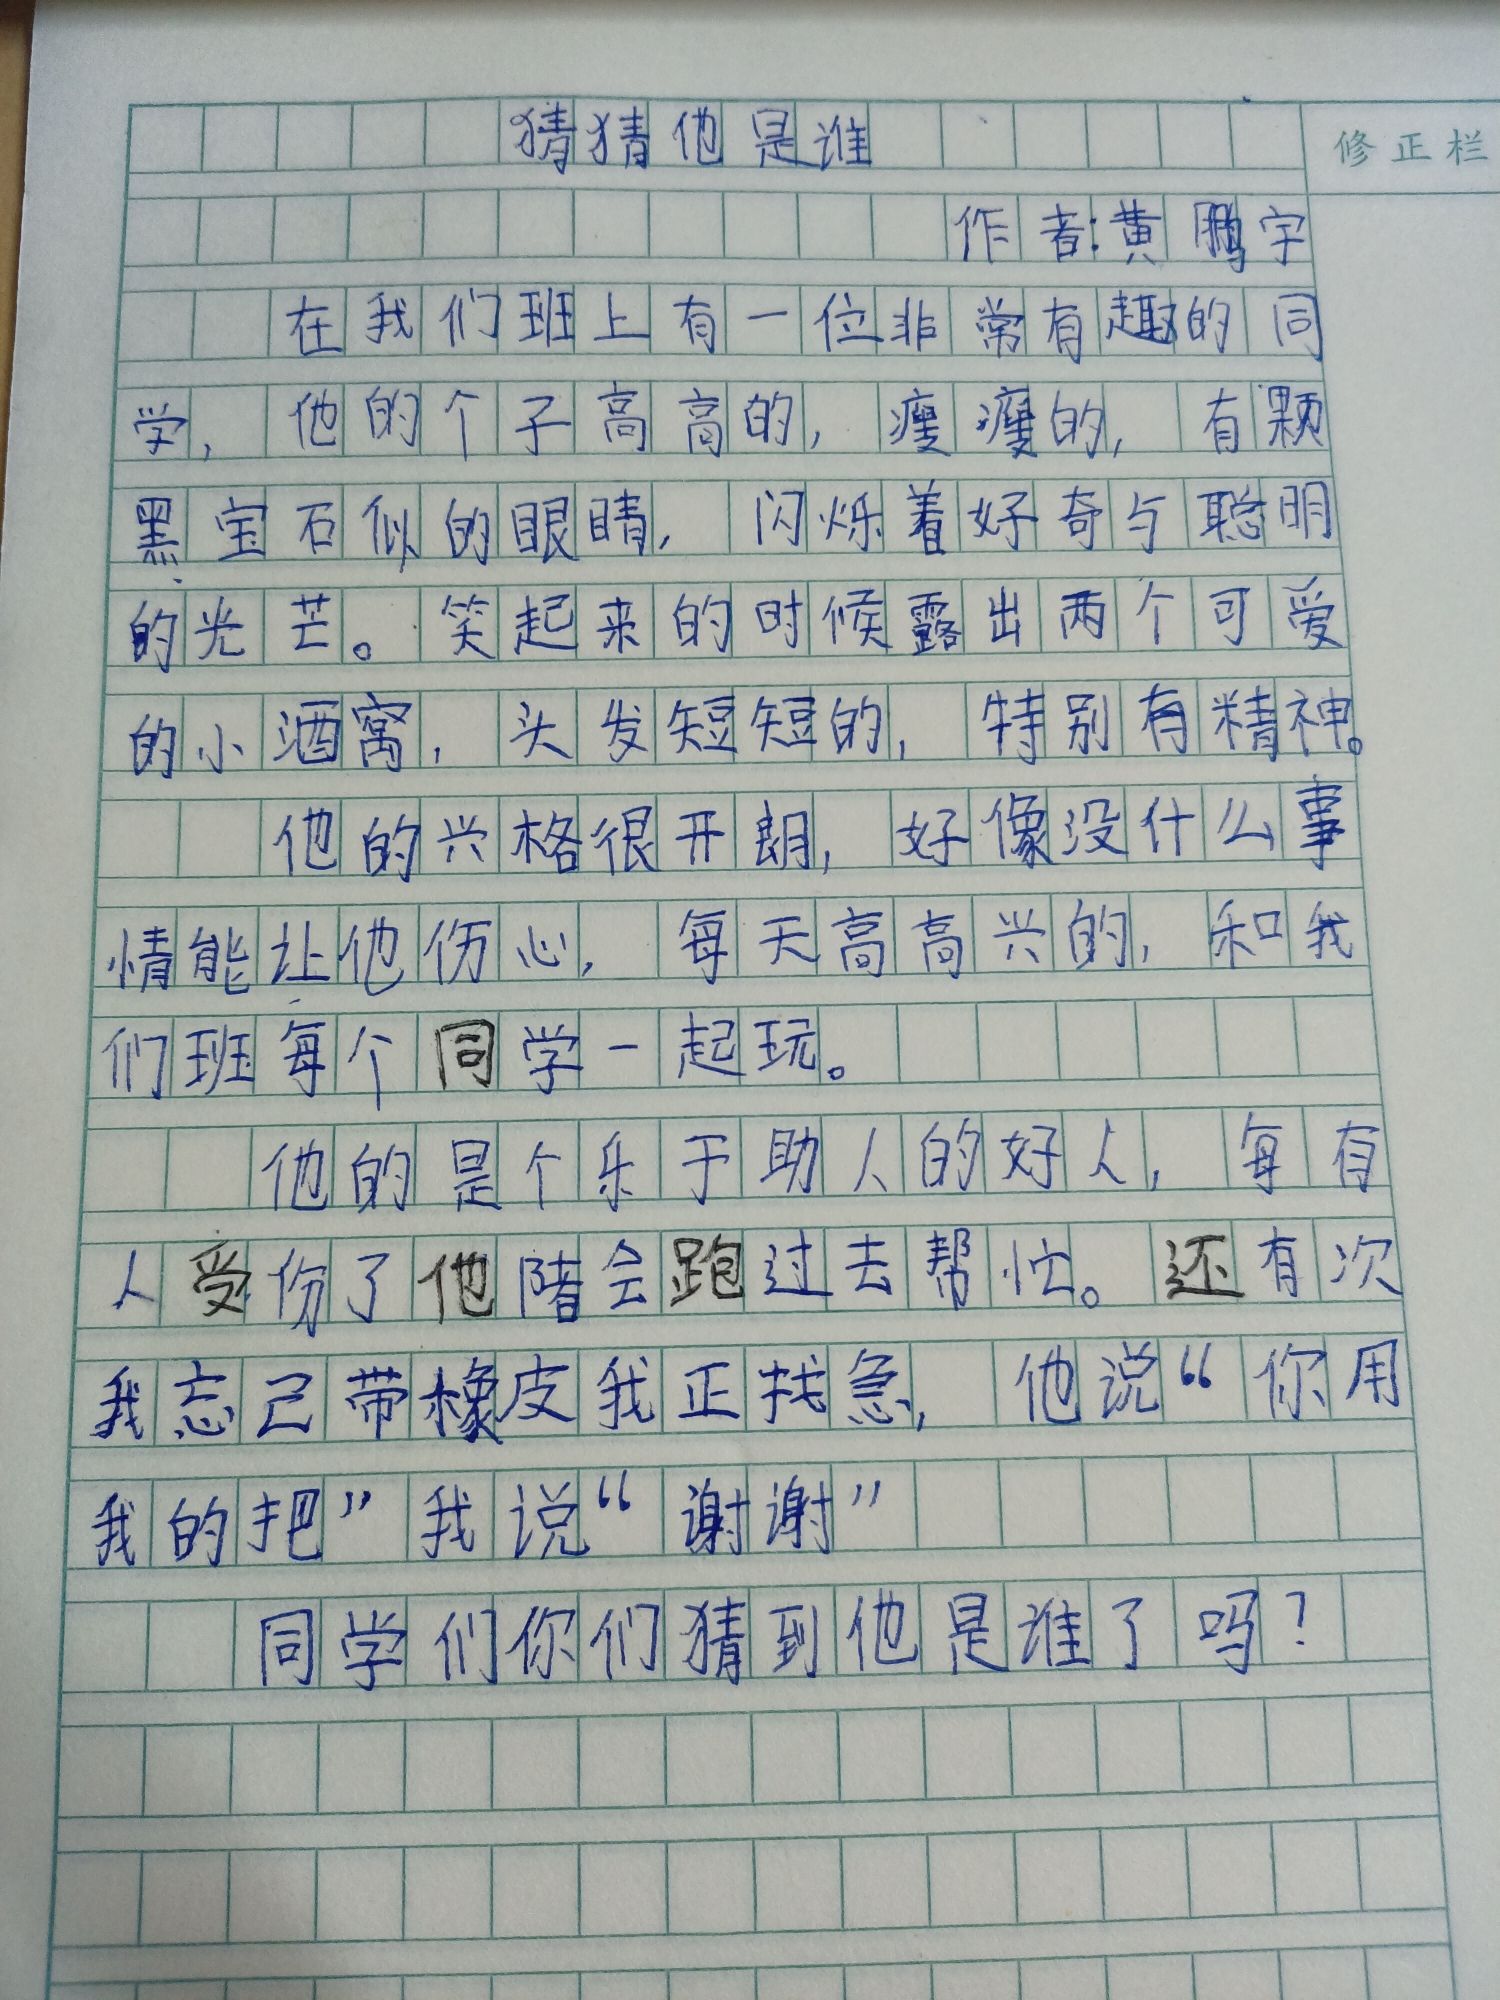 猜猜他是谁
修正栏
作者:黄鹏宇
在我们班上有一位非常有趣的同
学,他的个子高高的,瘦瘦的,有颗
黑宝石似的眼睛,闪烁着好奇与聪明
的光芒。笑起来的时候露出两个可爱
的小酒窝,头发短短的,特别有精神。
他的兴格很开朗,好像没什么事
情能让他伤心,每天高高兴的,和我
们班每个同学一起玩。
他的是个乐于助人的好人,每有
人受份了他陪会跑过去帮忙。还有次
我忘己带橡皮我正找急,他说“你用
我的把”我说“谢谢”
同学们你们猜到他是谁了吗?